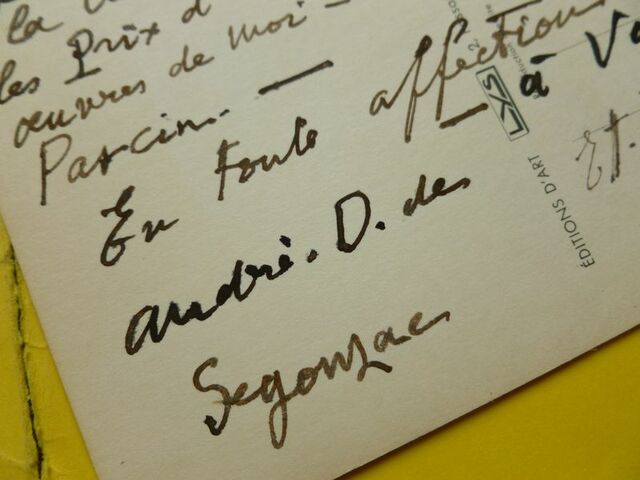 la
les Prix d
œuvres de moi -
Parcin. —
En toute affection
à Vo
Et.
André. D. de
Segonzac
LYS
ÉDITIONS D'ART